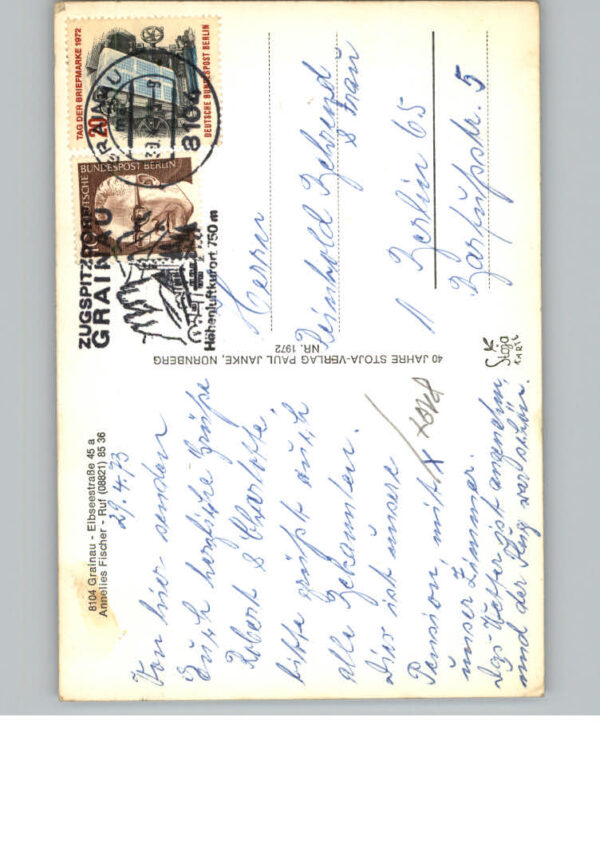 8104 Grainau - Eibseestraße 45 a
Annelies Fischer - Ruf (08821) 85 36
29.4.73
Von hier senden
Euch herzliche Grüße
Robert & Charlotte,
bitte grüßt auch
alle Bekannten.
Dies ist unsere
Pension, mit x
unser Zimmer.
Das Wetter ist angenehm
und der Flug war schön.
40 JAHRE STOJA-VERLAG PAUL JANKE, NÜRNBERG
NR. 1972
Stoja
KARTE
ZUGSPITZDORF
GRAINAU
Höhenluftkurort 750 m
GRAINAU
8104
TAG DER BRIEFMARKE 1972
20
DEUTSCHE BUNDESPOST BERLIN
DEUTSCHE BUNDESPOST BERLIN
Herrn
Reinhold Behrend
& Frau
1 Berlin 65
Barfußstr. 5